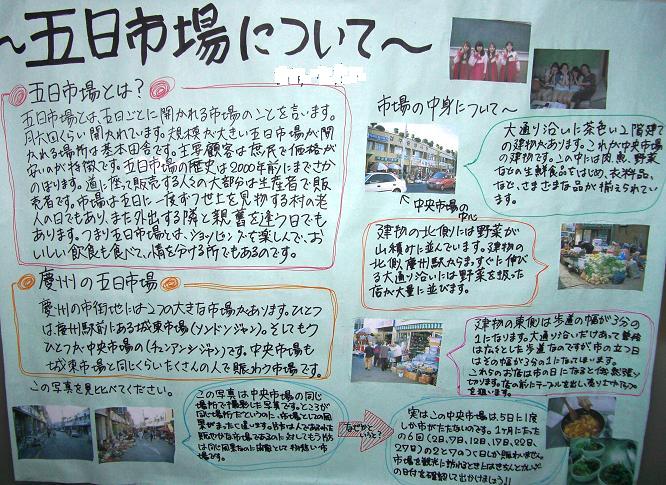 ～五日市場について～
五日市場とは？
五日市場とは、五日ごとに開かれる市場のことを言います。
月六回くらい開かれています。規模が大きい五日市場が開
かれる場所は基本田舎です。主な顧客は庶民で価格が
安いのが特徴です。五日市場の歴史は2000年前にまでさか
のぼります。道に座って販売する人々の大部分は生産者で販
売者です。市場は五日に一度ずつ世上を見物する村の老
人の日でもあり、また外出する隣と親舊を逢う日でも
あります。つまり五日市場は、ショッピングを楽しんで、お
いしい飲食も食べて、情を分ける所でもあるのです。
慶州の五日市場
慶州の市街地には2つの大きな市場があります。ひとつ
は慶州駅前にある城東市場(ソンドンジャン)。そしてもう
ひとつが、中央市場の(チュンアンジジャン)です。中央市場も
城東市場と同じくらいたくさんの人で賑わう市場です。
この写真を見比べてください。
この写真は中央市場の同じ
場所で撮影した写真です。ところが
市場です。
なぜかと
いうと？
市場の中身について～
中央市場の
中心
大通り沿いに茶色い2階建て
の建物があります。これが中央市場
の建物です。この中には肉、魚、野菜
などの生鮮食品をはじめ、衣料品、
など、さまざまな品が揃えられて
います。
建物の北側には野菜が
山積みに並んでいます。建物の
北側、慶州駅からまっすぐに伸び
る大通り沿いには野菜を扱った
店が大量に並びます。
建物の東側は歩道の幅が3分の
1になります。大通り沿いだけあって普段
は広々とした歩道なのですが、市の立つ日
はその幅が3分の1になってしまいます。
これらのお店は市の日になると
実はこの中央市場は、5日に1度
しか市がたたないのです。1ヶ月にたった
の6回(2日、7日、12日、17日、22日、
27日)の2と7のつく日しか賑わいません。
市場を観光に訪れるときは
の日付を確認して出かけましょう!!